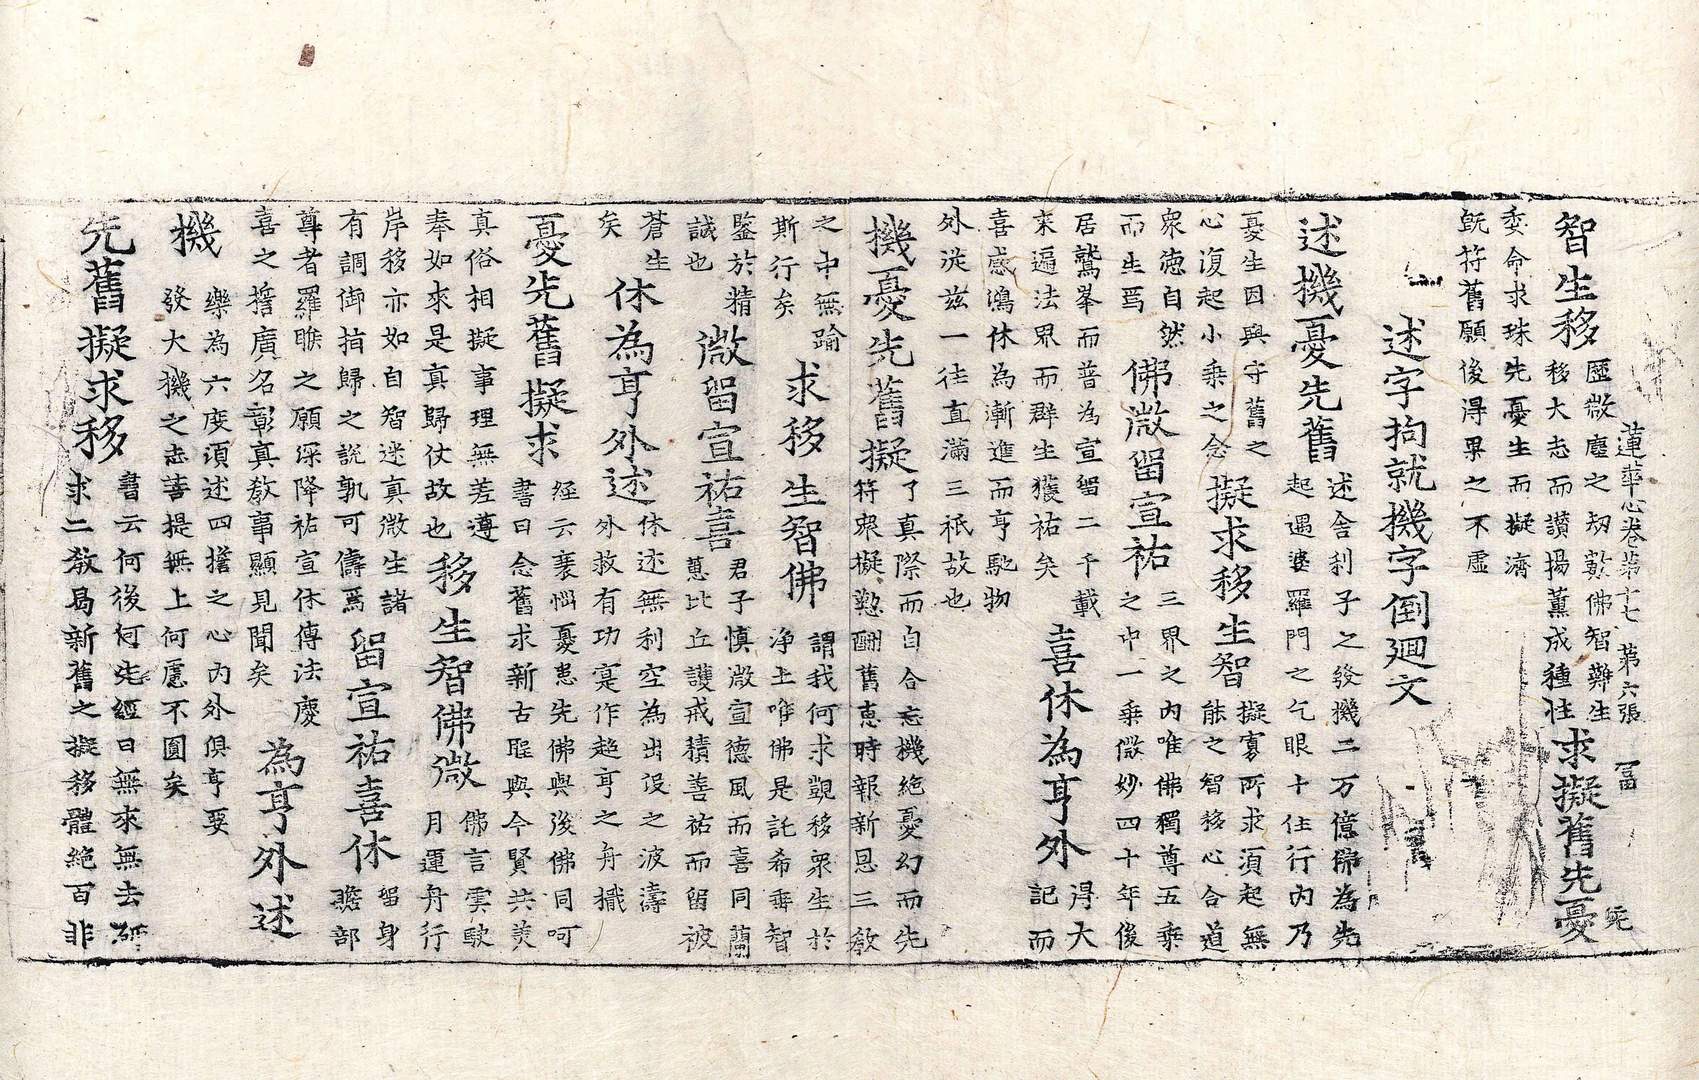 蓮華心卷第十七 第六張 冨
智生移
歷微塵之刼數佛智難生
移大志而讚揚薰成種性
求擬舊先憂
委命求珠先憂生而擬濟
旣符舊願後淂果之不虛
述字拘就機字倒廻文
述機憂先舊
述舍利子之發機二万億佛為先
起遇婆羅門之乞眼十住行內乃
憂生因興守舊之
心復起小乘之念
擬求移生智
擬寡所求湏起無
能之智移心合道
衆徳自然
而生焉
佛微留宣祐
三界之內唯佛獨尊五乘
之中一乘微妙四十年後
居鷲峯而普為宣留二千載
来遍法界而群生獲祐矣
喜休為亨外
淂大
記而
喜感鴻休為漸進而亨馳物
外㳺兹一往直滿三祇故也
機憂先舊擬
了真際而自合忘機絕憂幻而先
符衆擬懃酬舊恵時報新恩三教
之中無踰
斯行矣
求移生智佛
謂我何求覬移衆生於
净土唯佛是託希乘智
鑒於精
誠也
微留宣祐喜
君子慎微宣德風而喜同蘭
蕙比丘護戒積善祐而留被
蒼生
矣
休為亨外述
休迹無利空為出設之波濤
外救有功寔作超亨之舟檝
憂先舊擬求
経云衰惱憂患先佛與後佛同呵
書曰念舊求新古聖與今賢共羙
真俗相擬事理無差遵
奉如来是真歸仗故也
移生智佛微
佛言雲駛
月運舟行
岸移亦如自智迷真微生諸
有調御指歸之說孰可儔焉
留宣祐喜休
留身
贍部
尊者羅睺之願深降祐宣休傳法慶
喜之擔廣名彰真教事顯見聞矣
為亨外述
機
樂為六度湏述四擔之心內外俱亨要
發大機之志菩提無上何慮不圓矣
先舊擬求移
書云何後何先經曰無来無去研
求二教局新舊之擬移體絕百非